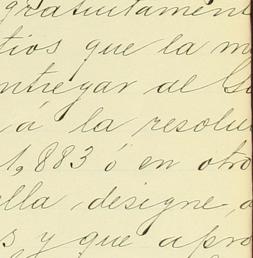 gratuitament
tios que la m
ntregar al G
á la resolu
1,883 ó en otro
ella designe, o
s y que apro